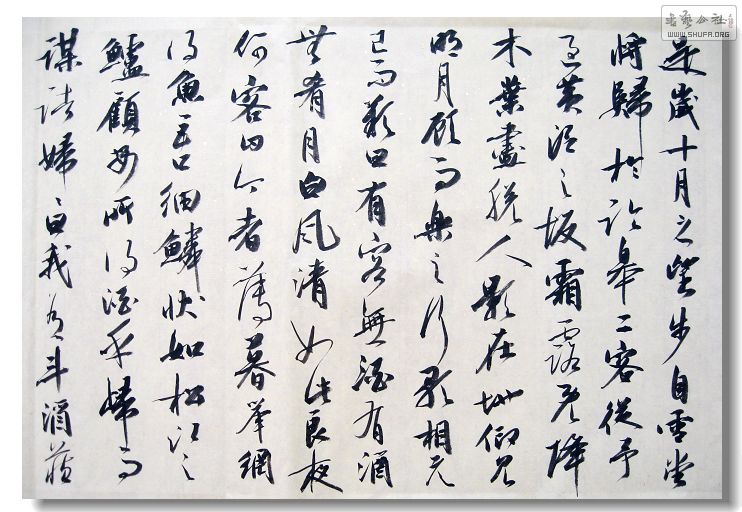 是歲十月之望步自雪堂
將歸於臨皋二客從予
過黃泥之坂霜露既降
木葉盡脫人影在地仰見
明月顧而樂之行歌相答
已而歎曰有客無酒有酒
無肴月白風清如此良夜
何客曰今者薄暮舉網
得魚巨口細鱗狀如松江之
鱸顧安所得酒乎歸而
謀諸婦曰我有斗酒藏
书艺公社
WWW.SHUFA.ORG